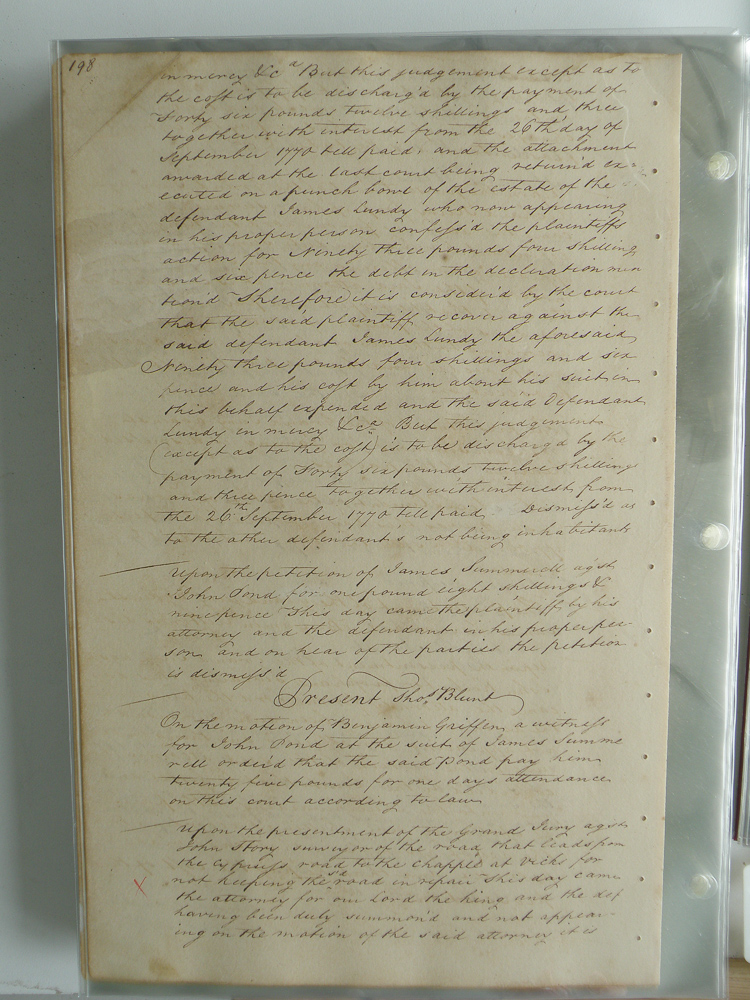 198
in mercy &c a But this judgement except as to
the cost is to be discharg'd by the payment of
Forty six pounds twelve shillings and three
together with interest from the 26th day of
September 1770 till paid. and the attachment
awarded at the last court being return'd ex=
ecuted on a punch bowl of the estate of the
defendant James Lundy who now appearing
in his proper person confess'd the plaintiffs
action for Ninety three pounds four shilling
and six pence the debt in the decleration men
tion'd Therefore it is consider'd by the court
that the said plaintiff recover against the
said defendant James Lundy the aforesaid
Ninety three pounds four shillings and six
pence and his cost by him about his suit in
this behalf expended and the said Defendant
Lundy in mercy &ca. But this judgement
(except as to the cost) is to be discharg'd by the
payment of Forty six pounds twelve shilling
and three pence together with interest from
the 26th September 1770 till paid Dismiss'd as
to the other defendants not being inhabitants
Upon the petition of James Summerell agst
John Pond for one pound eight shillings &
nine pence This day came the plaintiff by his
attorney and the defendant in his proper per
son and on hear of the parties the petition
is dismiss'd
Present Thos. Blunt
On the motion of Benjamin Griffen a witness
for John Pond at the suit of James Summe
rell order'd that the said Pond pay him
twenty five pounds for one days attendance
on this court according to law
Upon the presentment of the Grand Jury agst
John Story surveyor of the road that leads from
the Cypress road to the Chappel at Vicks for
not keeping the sd road in repair This day came
the attorney for our Lord the King and the def
having been duly summon'd and not appear-
ing on the motion of the said attorney it is
X